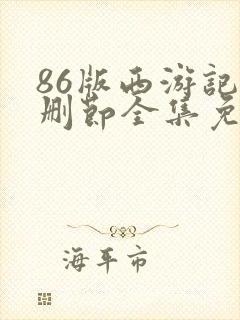 86版西游記
删節全集免
海平市